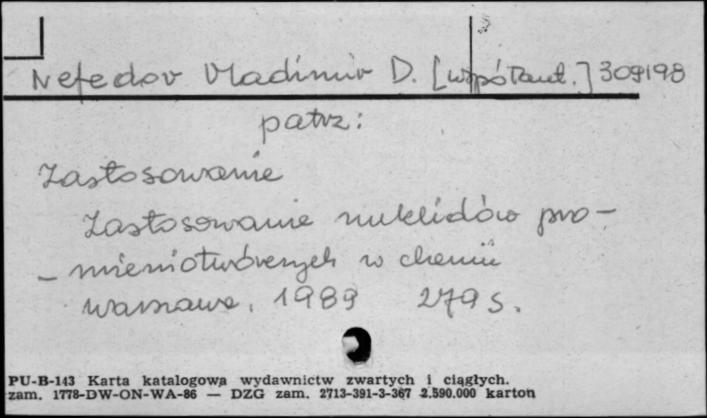 Nefedov Vladimir D. [współaut.] 309198
patrz:
Zastosowanie
Zastosowanie nuklidów pro-
- mieniotwórczych w chemii
Warszawa, 1989 279 s.
PU-B-143 Karta katalogowa wydawnictw zwartych i ciągłych.
zam. 1778-DW-ON-WA-86 — DZG zam. 2713-391-3-367 2.590.000 karton